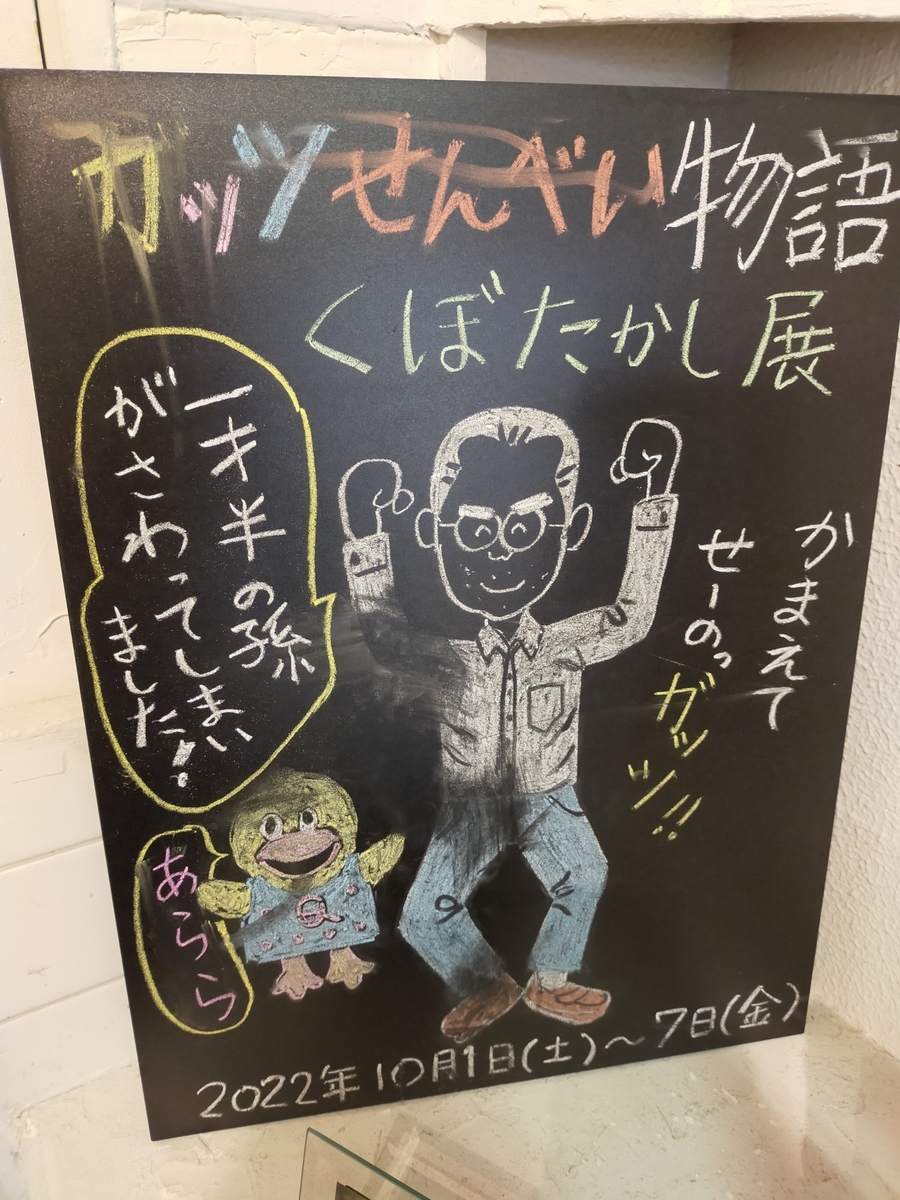 ガッツせんべい物語
くぼたかし展
かまえて
せーのっ
ガッツ!!
一才半の孫
がさわってしまい
ました!
あららら
2022年10月1日(土)~7日(金)